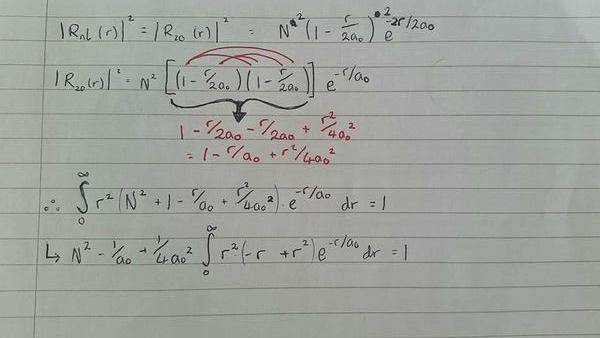 |Rnl(r)|² = |R₂₀(r)|² = N²(1 - r/2a₀)² e^-2r/2a₀
|R₂₀(r)|² = N² [(1 - r/2a₀)(1 - r/2a₀)] e^-r/a₀
1 - r/2a₀ - r/2a₀ + r²/4a₀²
= 1 - r/a₀ + r²/4a₀²
∴ ∫₀^∞ r² (N² + 1 - r/a₀ + r²/4a₀²) · e^-r/a₀ dr = 1
↳ N² - 1/a₀ + 1/4a₀² ∫₀^∞ r² · (-r + r²) e^-r/a₀ dr = 1